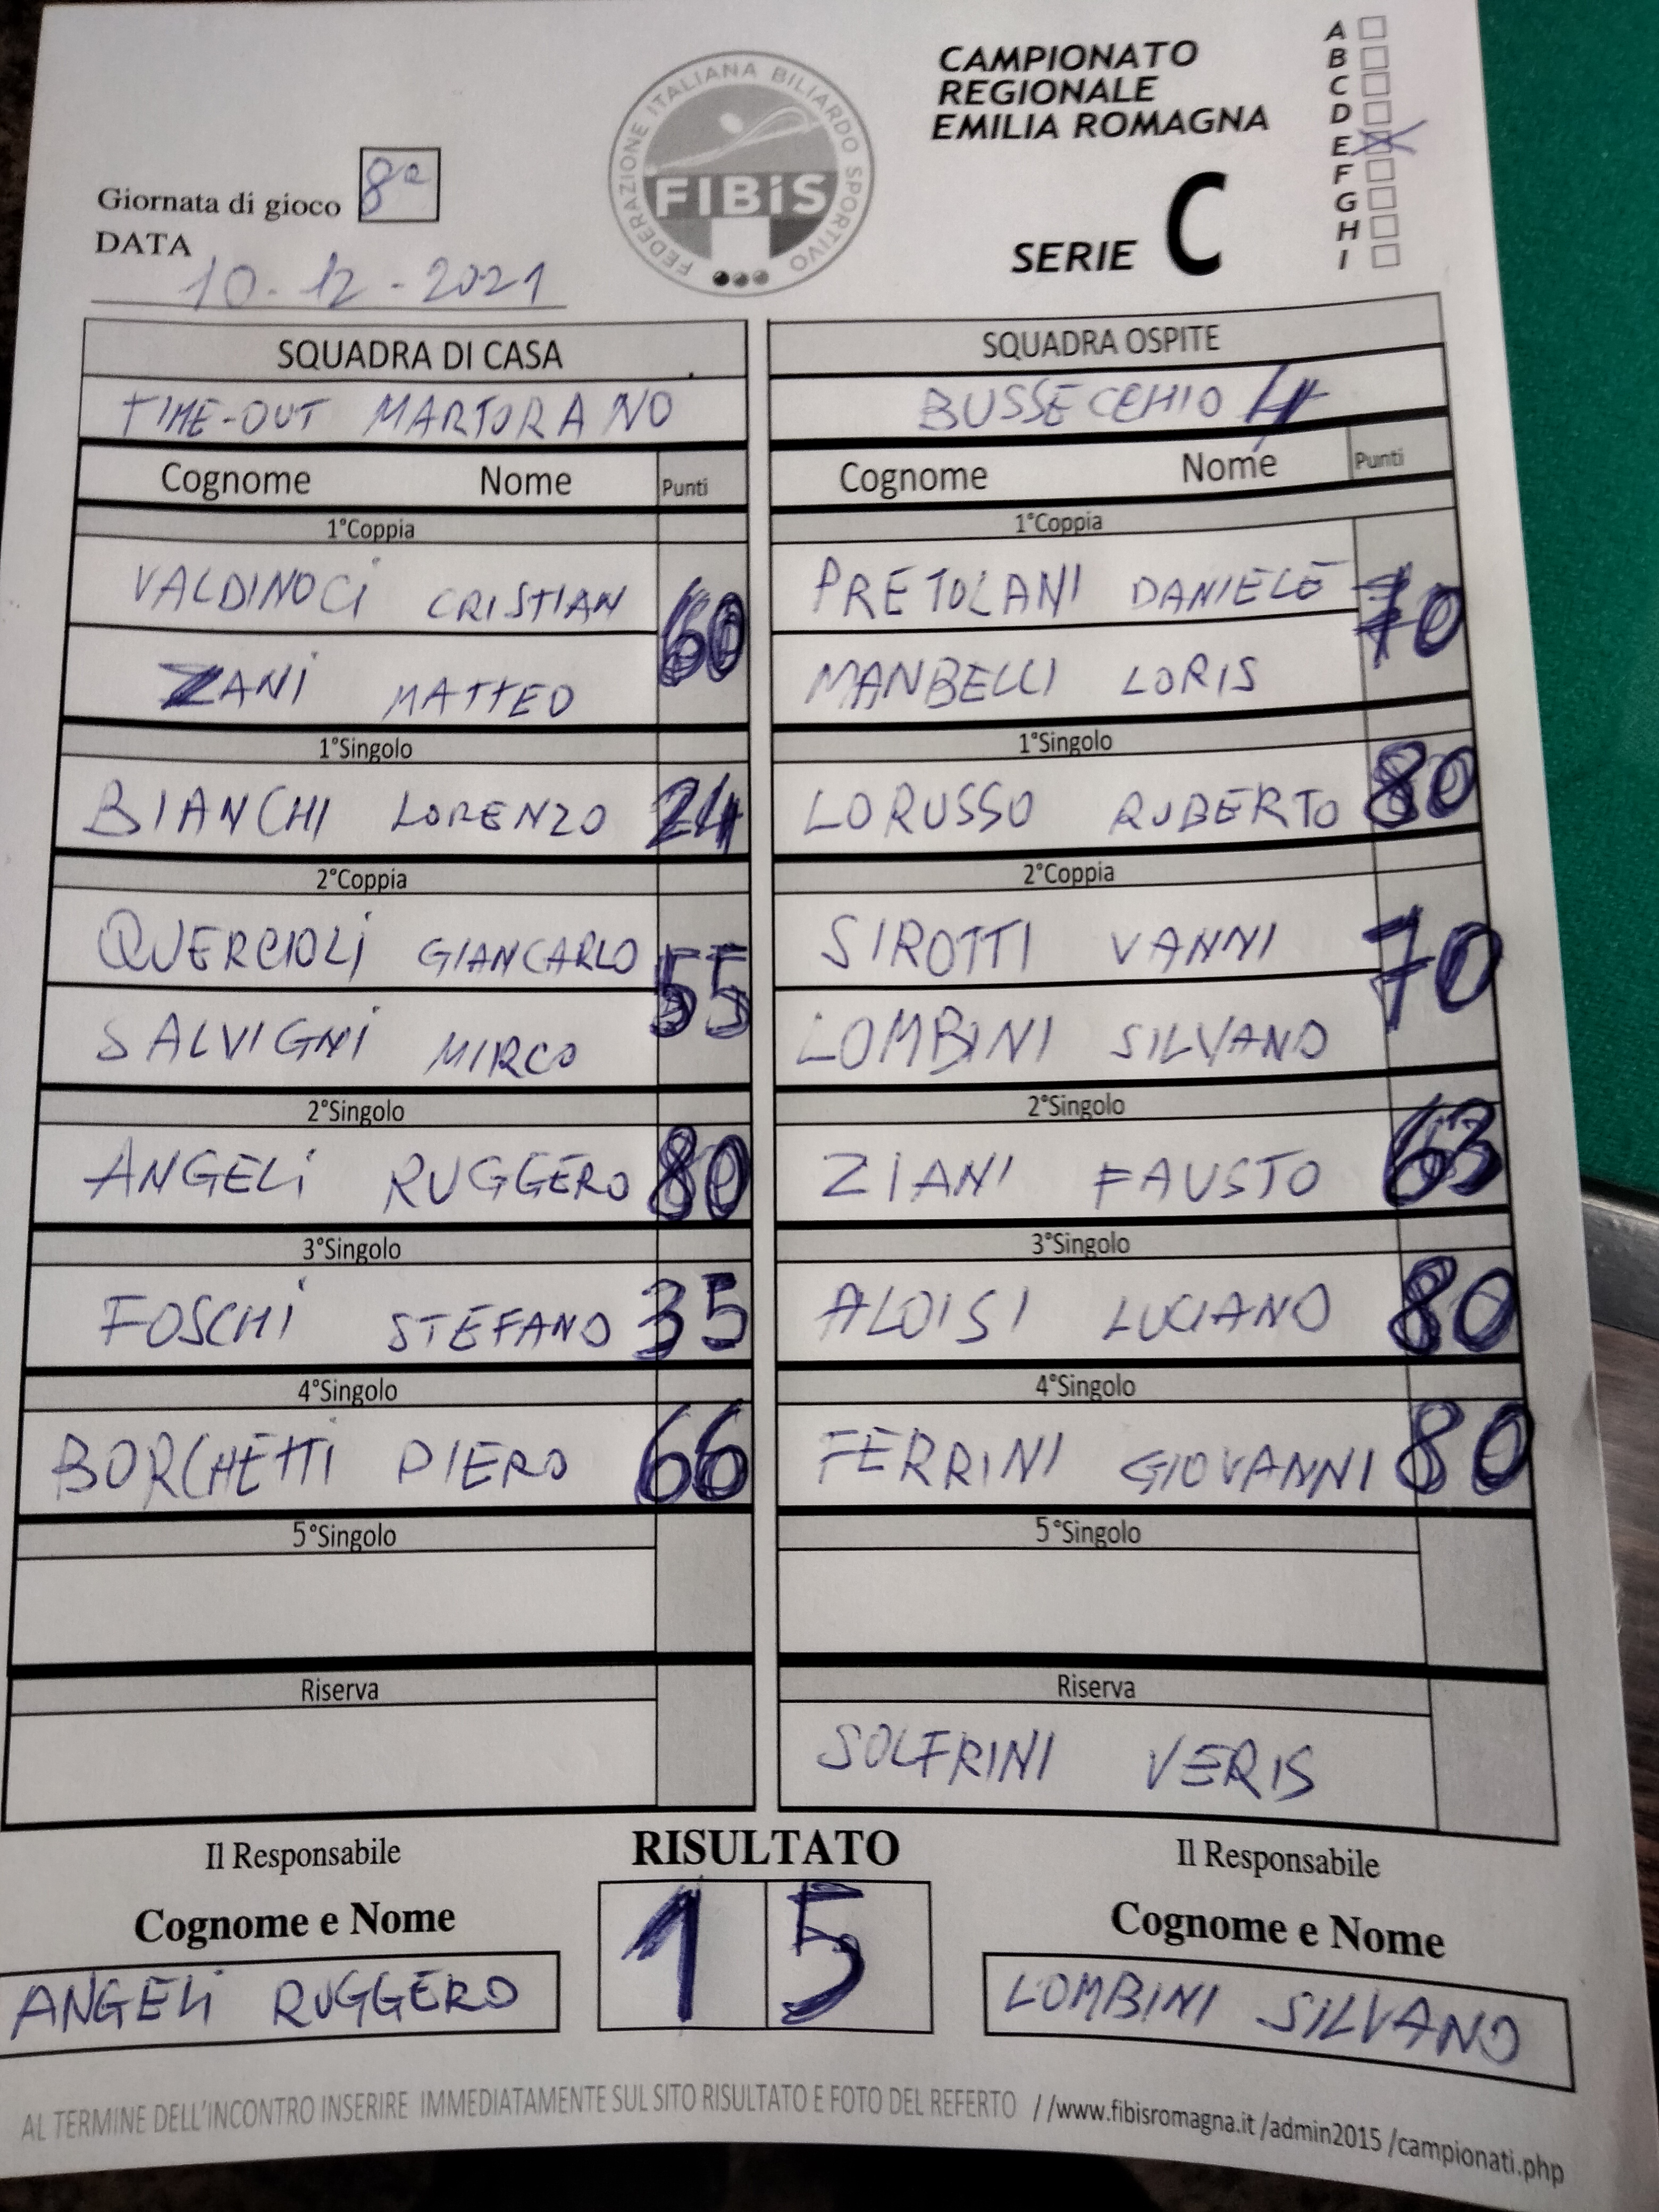 CAMPIONATO
REGIONALE
EMILIA ROMAGNA
SERIE C
A
B
C
D
E
F
G
H
I
FEDERAZIONE ITALIANA BILIARDO SPORTIVO
FIBiS
Giornata di gioco 8a
DATA
10-12-2021
SQUADRA DI CASA
TIME-OUT MARTORANO
Cognome Nome Punti
1°Coppia
VALDINOCi CRISTIAN 60
ZANi MATTEO
1°Singolo
BIANCHI LORENZO 24
2°Coppia
QUERCIOLi GIANCARLO 55
SALVIGNi MIRCO
2°Singolo
ANGELi RUGGERO 80
3°Singolo
FOSCHi STEFANO 35
4°Singolo
BORCHETTI PIERO 66
5°Singolo
Riserva
SQUADRA OSPITE
BUSSECCHIO 4
Cognome Nome Punti
1°Coppia
PRETOLANI DANIELE 70
MANBELLI LORIS
1°Singolo
LORUSSO ROBERTO 80
2°Coppia
SIROTTI VANNI 70
LOMBINI SILVANO
2°Singolo
ZIANI FAUSTO 63
3°Singolo
ALOISI LUCIANO 80
4°Singolo
FERRINI GIOVANNI 80
5°Singolo
Riserva
SOLFRINI VERIS
Il Responsabile
Cognome e Nome
ANGELi RUGGERO
RISULTATO
1 5
Il Responsabile
Cognome e Nome
LOMBINI SILVANO
AL TERMINE DELL'INCONTRO INSERIRE IMMEDIATAMENTE SUL SITO RISULTATO E FOTO DEL REFERTO //www.fibisromagna.it/admin2015/campionati.php